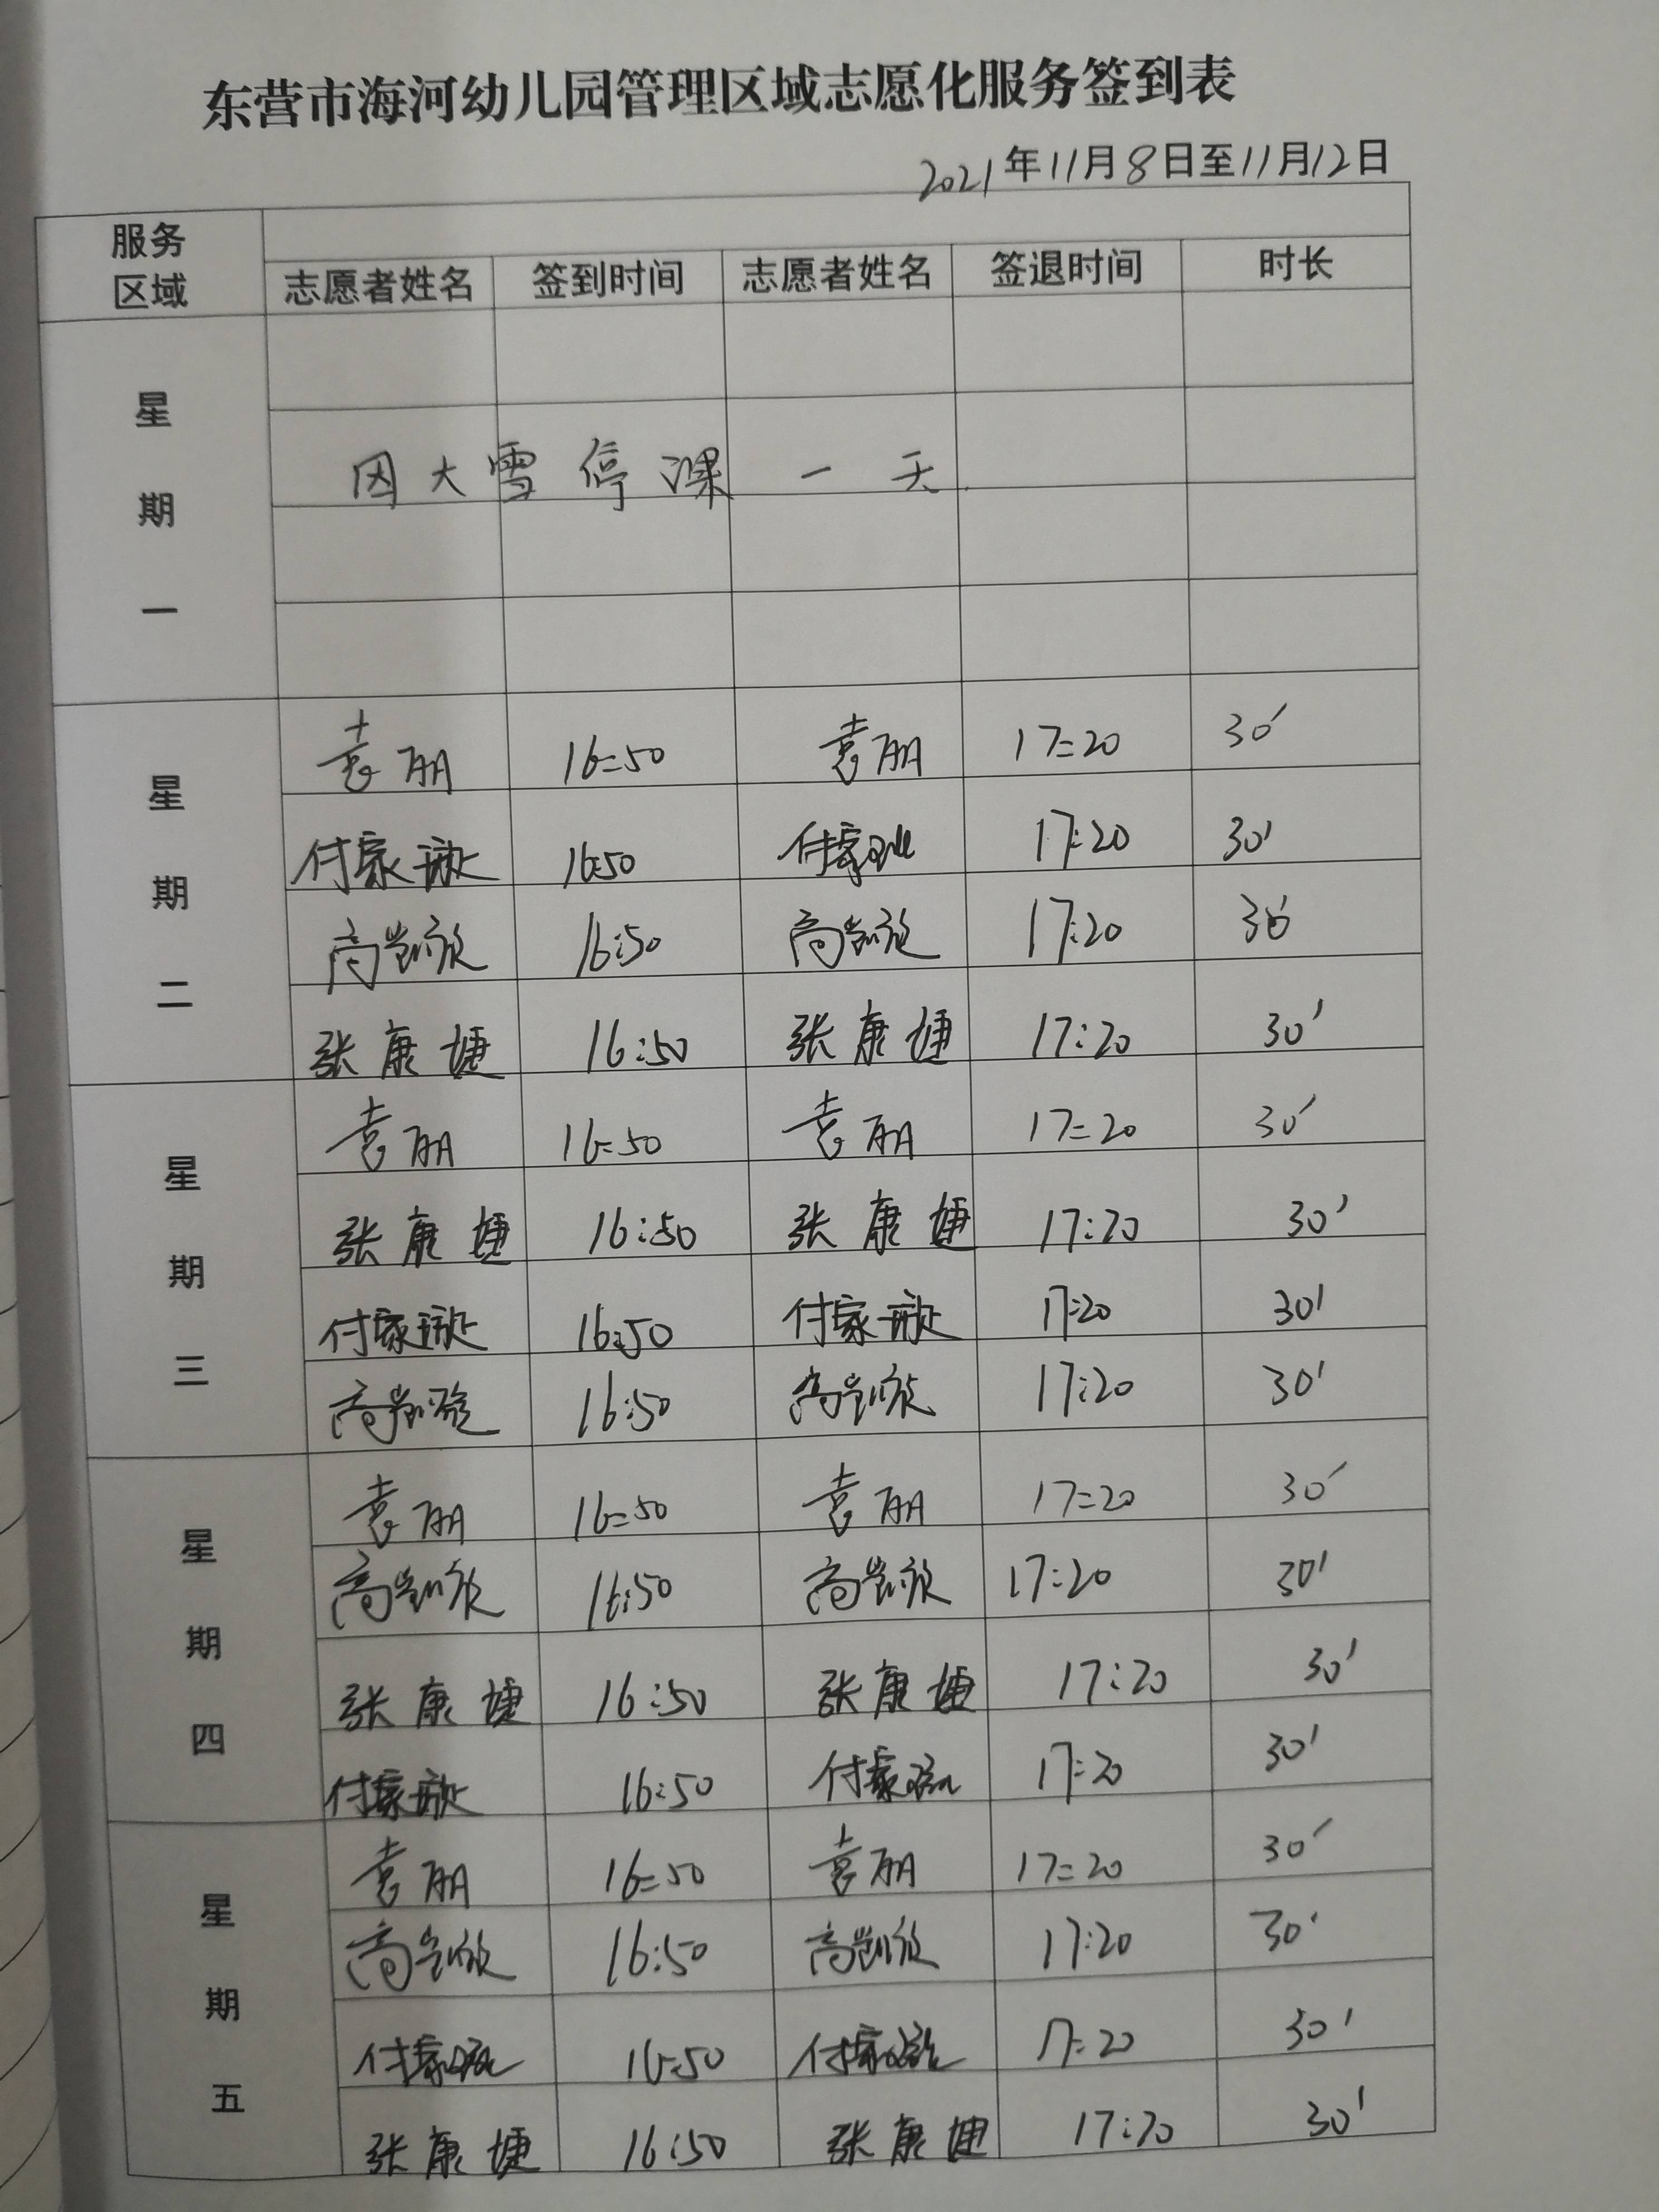 东营市海河幼儿园管理区域志愿化服务签到表
2021年11月8日至11月12日
服务区域 志愿者姓名 签到时间 志愿者姓名 签退时间 时长
星期一
因大雪停课一天.
星期二
袁丽 16:50 袁丽 17:20 30'
付家 16:50 付家 17:20 30'
高凯旋 16:50 高凯旋 17:20 30'
张康婕 16:50 张康婕 17:20 30'
星期三
袁丽 16:50 袁丽 17:20 30'
张康婕 16:50 张康婕 17:20 30'
付家 16:50 付家 17:20 30'
高凯旋 16:50 高凯旋 17:20 30'
星期四
袁丽 16:50 袁丽 17:20 30'
高凯旋 16:50 高凯旋 17:20 30'
张康婕 16:50 张康婕 17:20 30'
付家 16:50 付家 17:20 30'
星期五
袁丽 16:50 袁丽 17:20 30'
高凯旋 16:50 高凯旋 17:20 30'
付家 16:50 付家 17:20 30'
张康婕 16:50 张康婕 17:20 30'